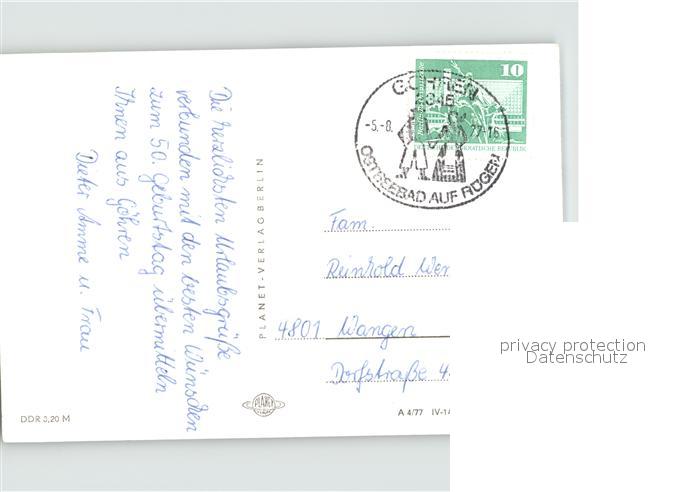 Die herzlichsten Urlaubsgrüße
verbunden mit den besten Wünschen
zum 50. Geburtstag übermitteln
Ihnen aus Göhren
Dieter Amme u. Frau
PLANET-VERLAG BERLIN
10
GÖHREN
-5.-8.
77-16
OSTSEEBAD AUF RÜGEN
Fam.
Reinhold
4801 Wangen
Dorfstraße 4
PLANET
DDR 0,20 M
A 4/77 IV-14
privacy protection
Datenschutz